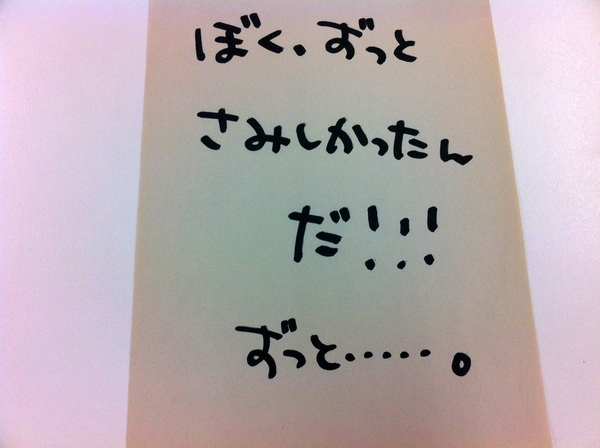 ぼく、ずっと
さみしかったん
だ!!!
ずっと……。